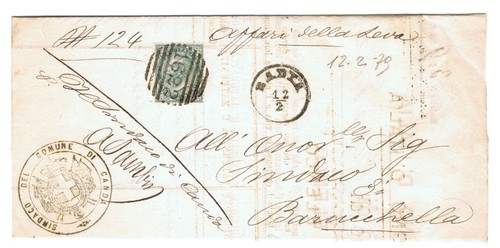 N 124
Affari della Leva
12.2.79
BADIA
12
2
Il Sindaco di Canda
All' Onor. Sig
Sindaco
di
Baruchella
SINDACO DEL COMUNE DI CANDA